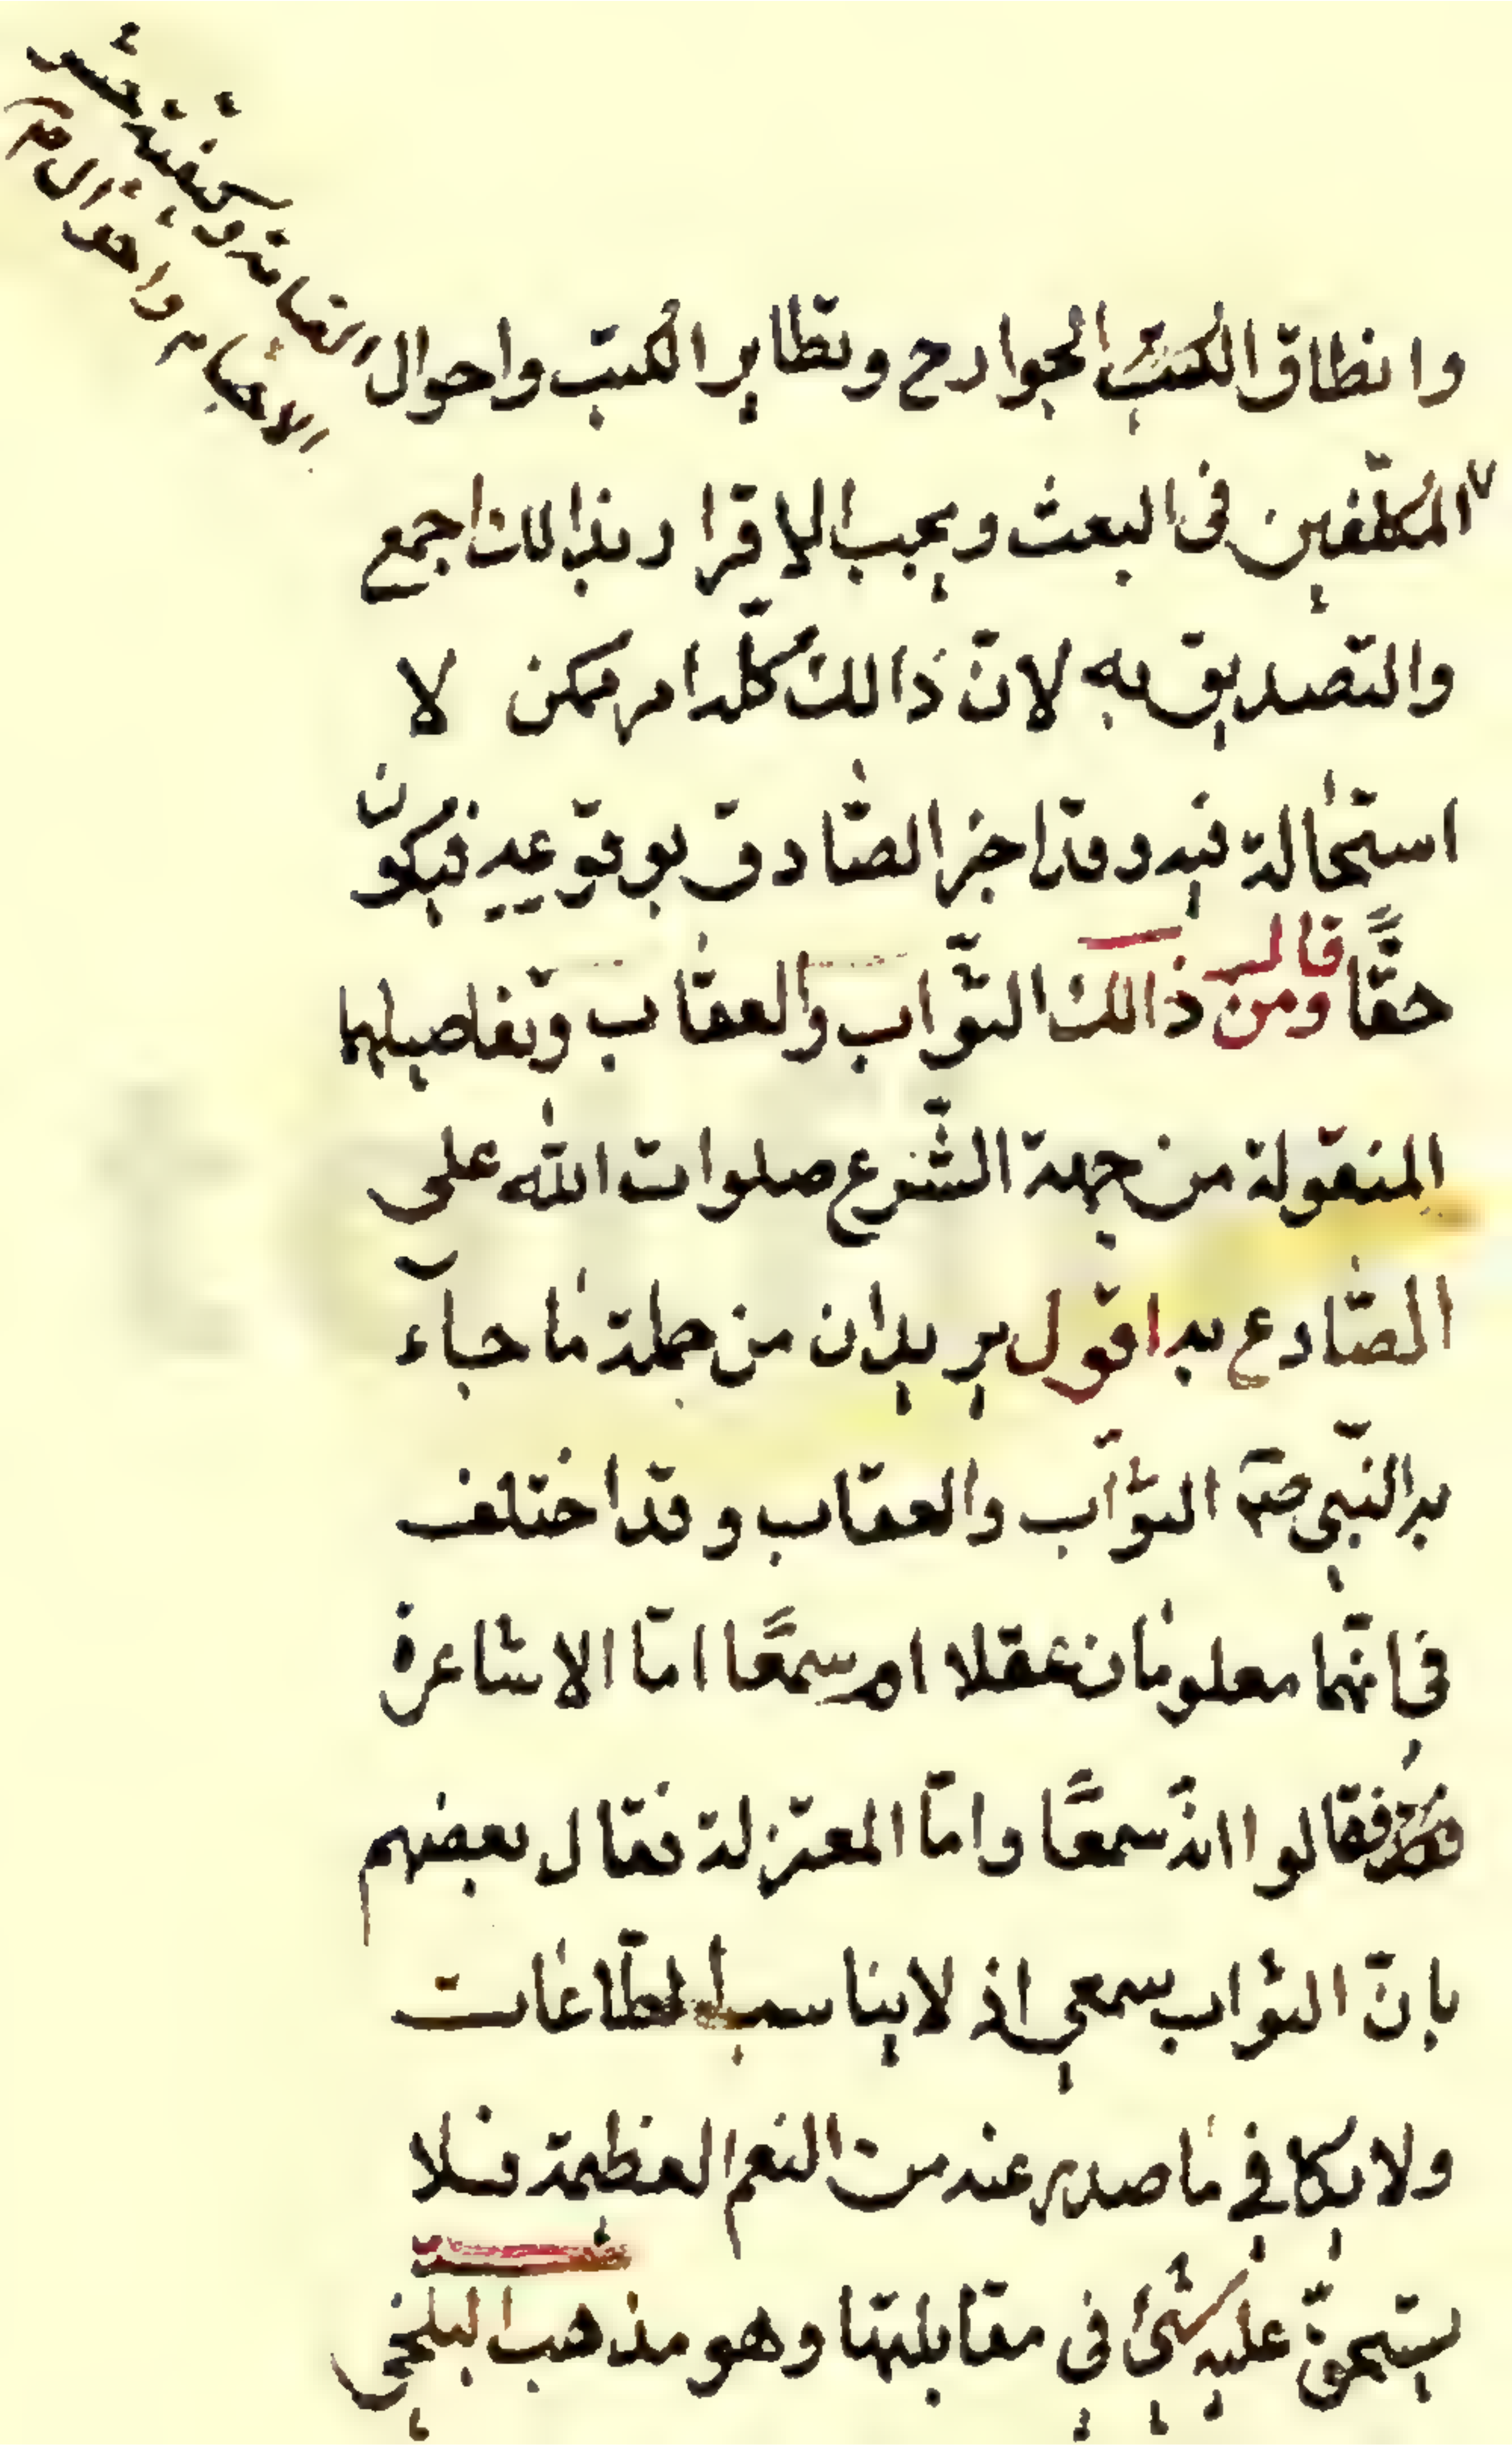 وانطاق الجوارح وتطاير الكتب واحوال
القيامة وكيفية حشر
الاجسام واحوال
المكلفين في البعث ويجب الاقرار بذالك اجمع
والتصديق به لانّ ذالك كلّه امر ممكن لا
استحالة فيه وقد اخبر الصّادق بوقوعه فيكون
حقًّا قال ومن ذالك الثّواب والعقاب وتفاصيلهما
المنقولة من جهة الشّرع صلوات الله على
الصّادع به اقول يريد ان من جملة ما جاء
به النّبي صم الثّواب والعقاب وقد اختلف
في انّهما معلومان عقلا ام سمعًا امّا الاشاعرة
فقالوا انه سمعًا وامّا المعتزلة فقال بعضهم
بانّ الثواب سمعي اذ لا يناسب الطّاعات
ولا يكافي ما صدر عنه من النعم العظيمة فلا
يستحقّ عليه شئ في مقابلتها وهو مذهب البلخي